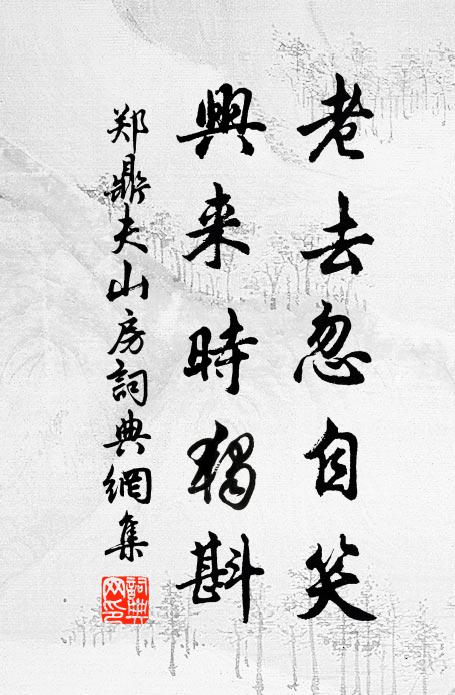 老去忽自笑
興来時獨斟
郑鼎夫山房詞典網集
詞典网印